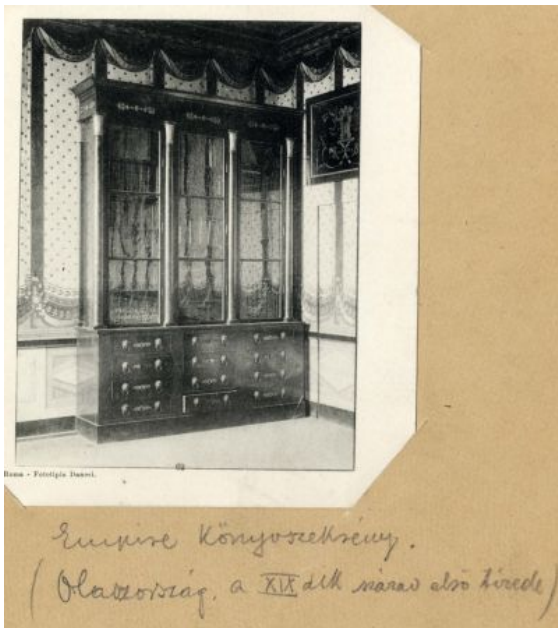 Roma - Fototipia Danesi.
Empire Könyvszekrény.
(Olaszország. a XIX dik század első tizede)